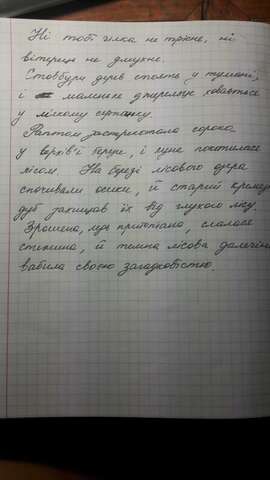 Ні тобі гілка не трісне, ні
вітерець не дмухне.
Стовбури дерев сплять у тумані,
і маленьке джерельце ховається
у лісному серпанку.
Раптом застрекотала сорока
у верхів'ї берези, і луна покотилася
лісом. На березі лісового озера
спочивали осики, й старий кремезн
дуб захищав їх від глухого яру.
Зрошена, ледь притоптана, слалася
стежина, й темна лісова далечінь
вабила своєю загадковістю.